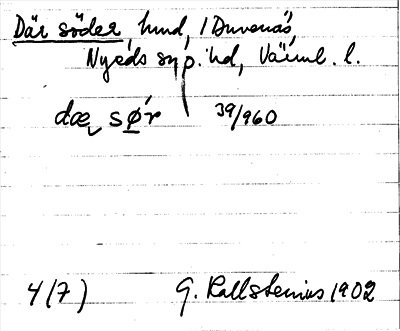 Där söder, hmd, i Duvenäs,
Nyeds sn, p. hd, Värml. l.
dæ sø̱r 39/960
4 (7) G. Kallstenius 1902